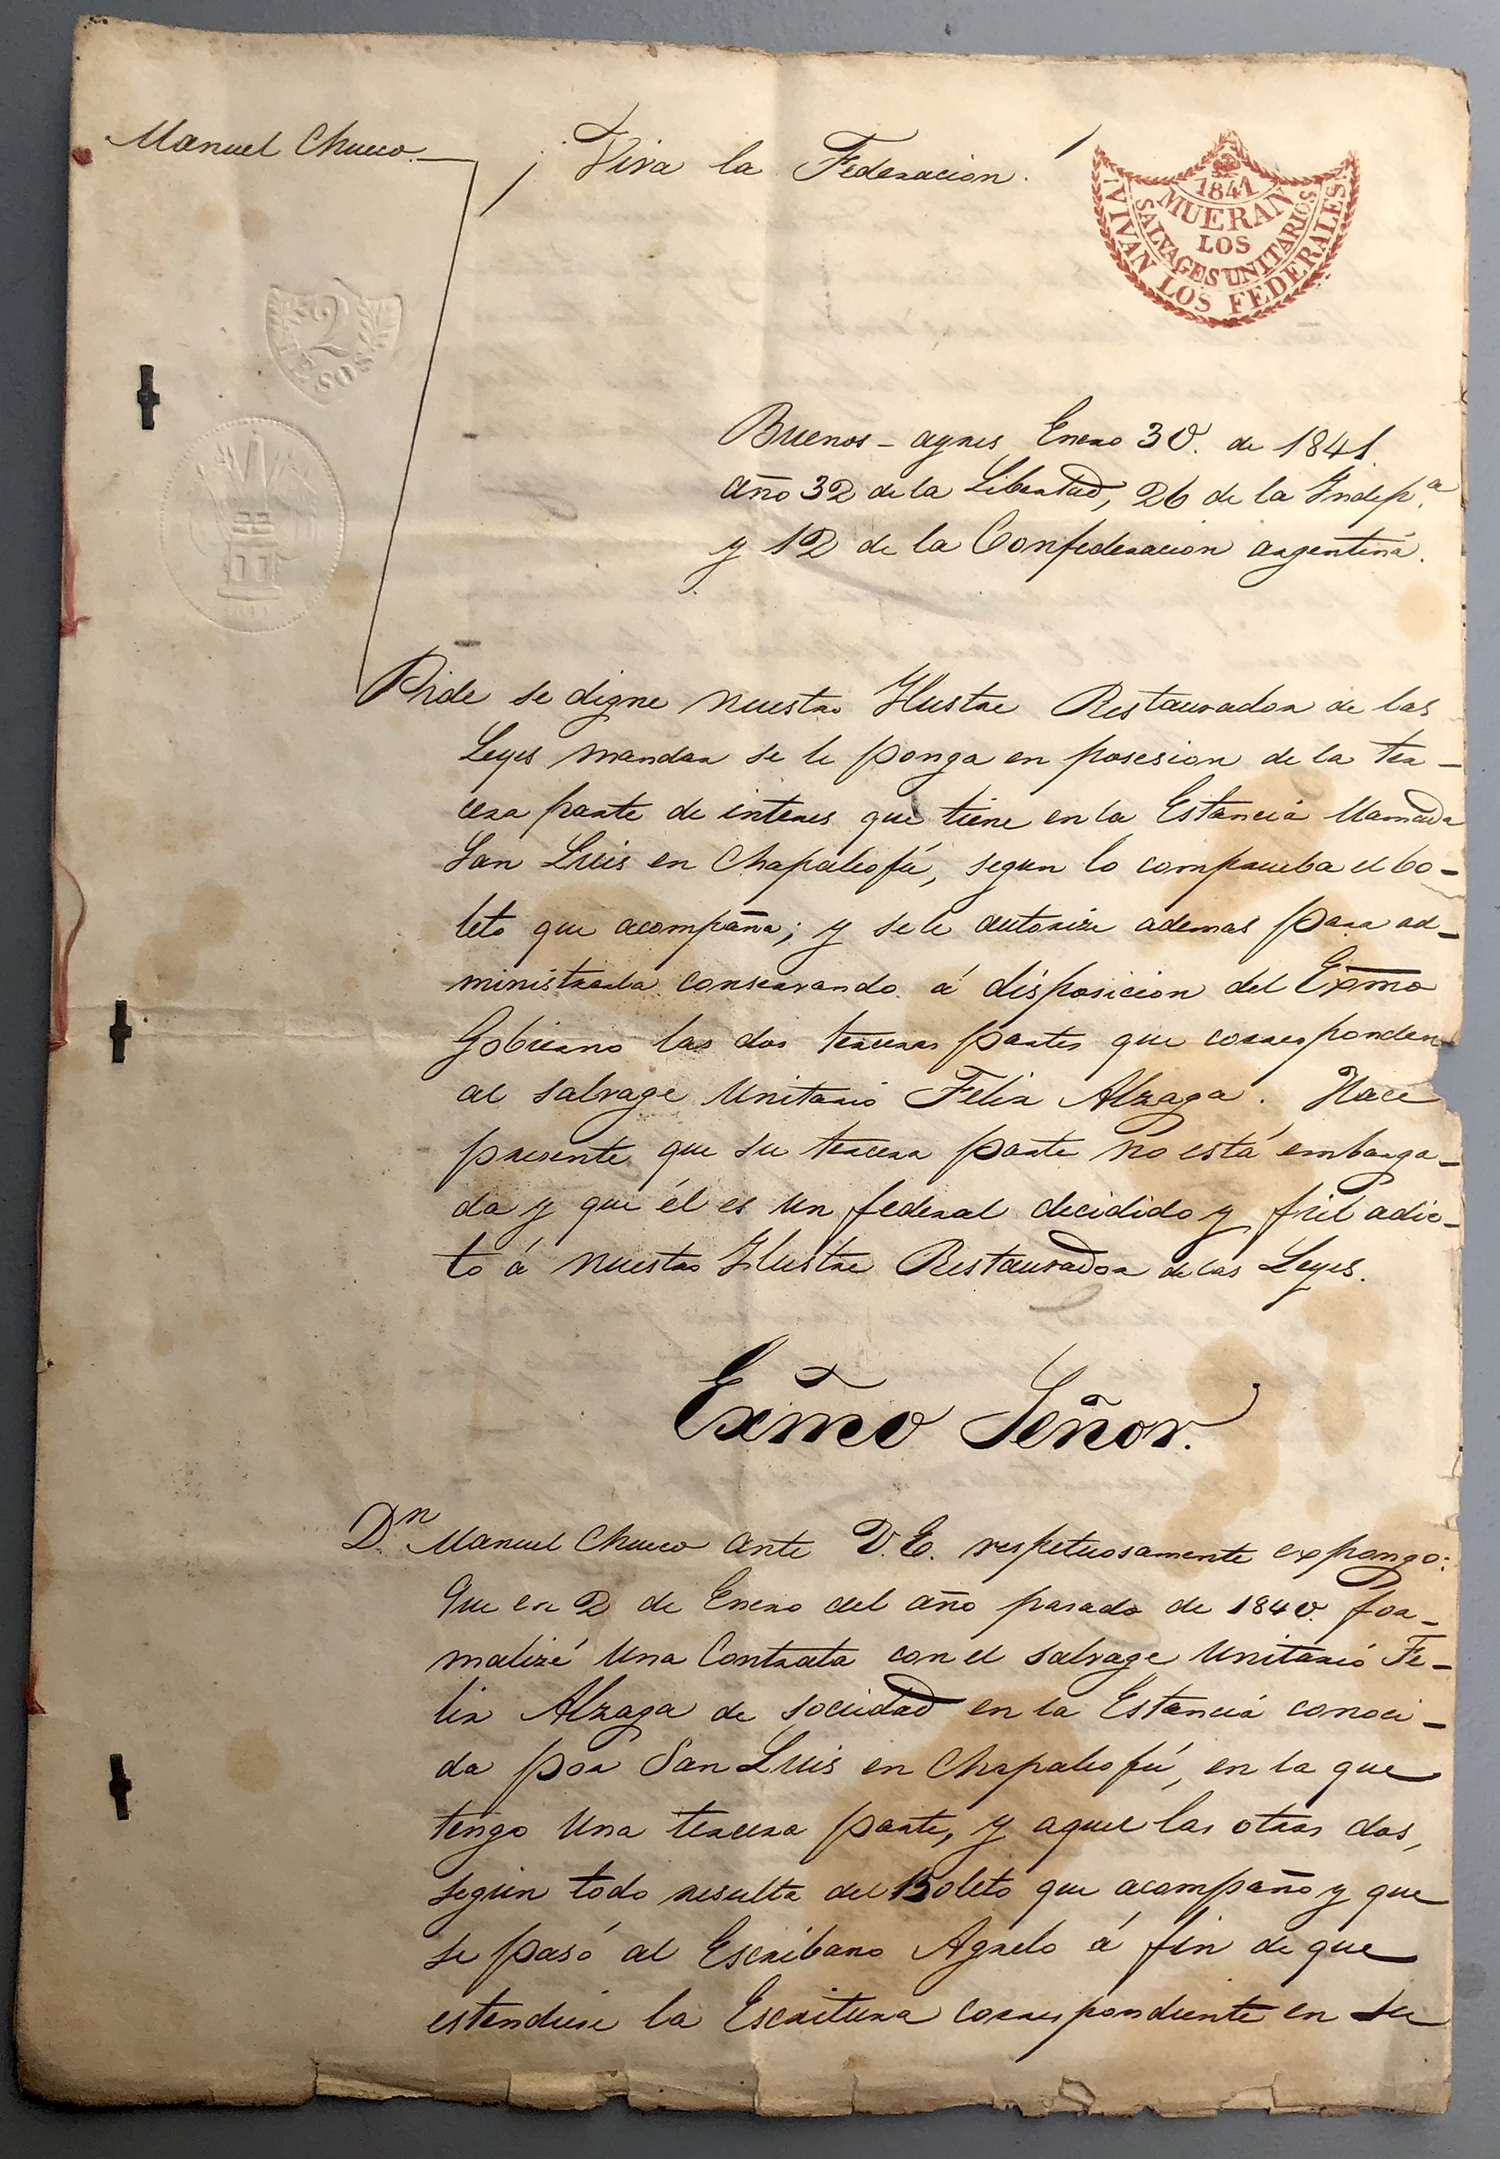 Manuel Chueco.
¡Viva la Federacion!
1841
MUERAN
LOS
SALVAGES UNITARIOS
¡VIVAN LOS FEDERALES!
2
PESOS
Buenos-ayres Enero 30. de 1841.
Año 32 de la Libertad, 26 de la Indep.a
y 12 de la Confederacion argentina.
Pide se digne nuestro Ilustre Restaurador de las
Leyes mandar se le ponga en posesion de la ter-
cera parte de interes que tiene en la Estancia llamada
San Luis en Chapaleofú, segun lo comprueba el bo-
leto que acompaña; y se le autorize ademas para ad-
ministrarla conservando á disposicion del Exmo
Gobierno las dos terceras partes que corresponden
al salvage Unitario Felix Alzaga. Hace
presente que su tercera parte no está embarga-
da y que él es un federal decidido y fiel adic-
to á nuestro Ilustre Restaurador de las Leyes.
Exmo Señor.
Dn Manuel Chueco ante V.E. respetuosamente expongo:
Que en 2 de Enero del año pasado de 1840. for-
malizé una Contrata con el salvage Unitario Fe-
lix Alzaga de sociedad en la Estancia conoci-
da por San Luis en Chapaleofú, en la que
tengo una tercera parte, y aquel las otras dos,
segun todo resulta del Boleto que acompaño y que
se pasó al Escribano Agrelo á fin de que
estendiese la Escritura correspondiente en su